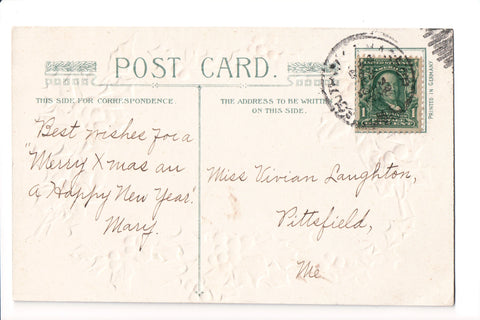 POST CARD.
THIS SIDE FOR CORRESPONDENCE
THE ADDRESS TO BE WRITTEN
ON THIS SIDE.
PRINTED IN GERMANY
Best wishes for a
"Merry Xmas an
a Happy New Year".
Mary.
Miss Vivian Laughton,
Pittsfield,
Me